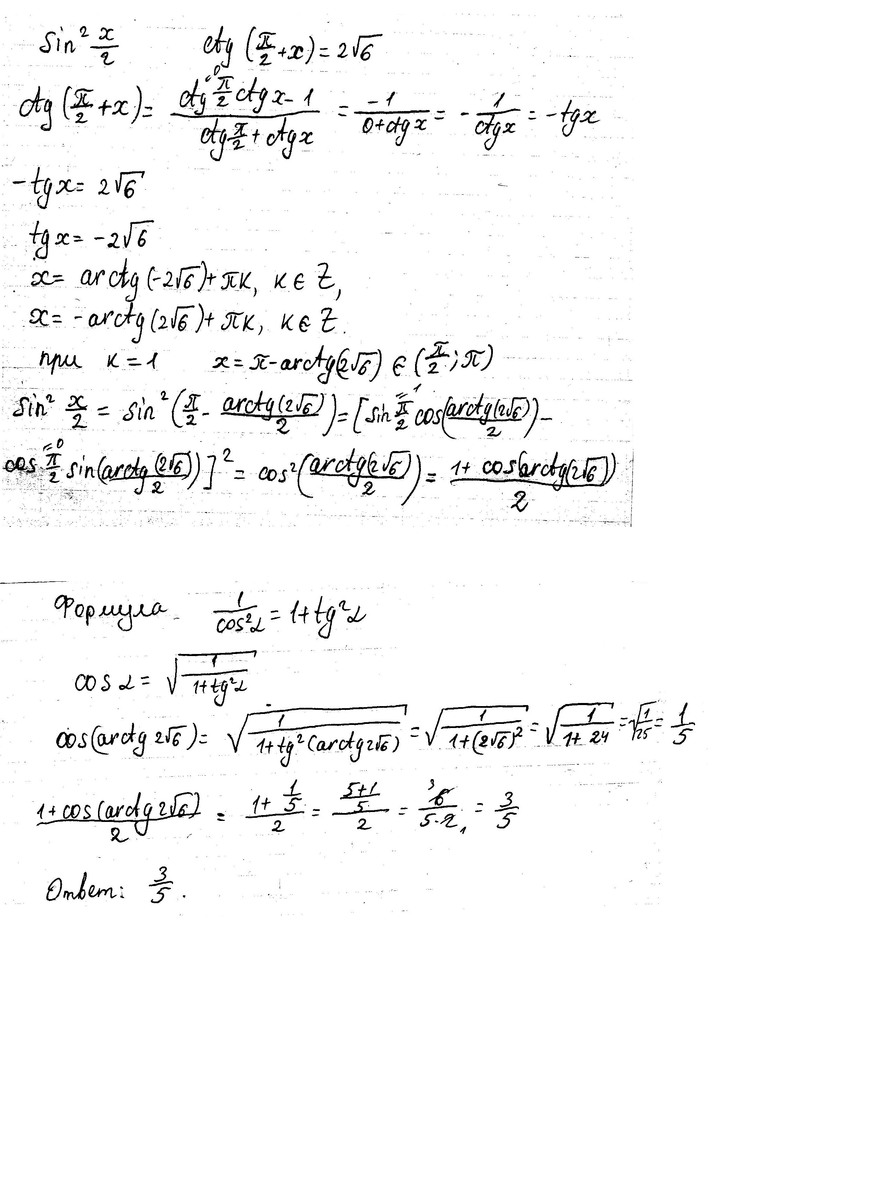 sin² x/2    ctg (π/2 + x) = 2√6
ctg (π/2 + x) = (ctg π/2 ctg x - 1)/(ctg π/2 + ctg x) = -1/(0 + ctg x) = - 1/ctg x = -tg x
-tg x = 2√6
tg x = -2√6
x = arctg (-2√6) + πk, k ∈ Z,
x = -arctg (2√6) + πk, k ∈ Z.
при k = 1    x = π - arctg(2√6) ∈ (π/2; π)
sin² x/2 = sin² (π/2 - arctg(2√6)/2) = [sin π/2 cos(arctg(2√6)/2) -
cos π/2 sin(arctg(2√6)/2)]² = cos² (arctg(2√6)/2) = (1 + cos(arctg(2√6)))/2
Формула    1/cos²α = 1 + tg²α
cos α = √(1/(1 + tg²α))
cos(arctg 2√6) = √(1/(1 + tg²(arctg 2√6))) = √(1/(1 + (2√6)²)) = √(1/(1 + 24)) = √(1/25) = 1/5
(1 + cos(arctg 2√6))/2 = (1 + 1/5)/2 = ((5+1)/5)/2 = 6/(5·2) = 3/5
Ответ: 3/5.